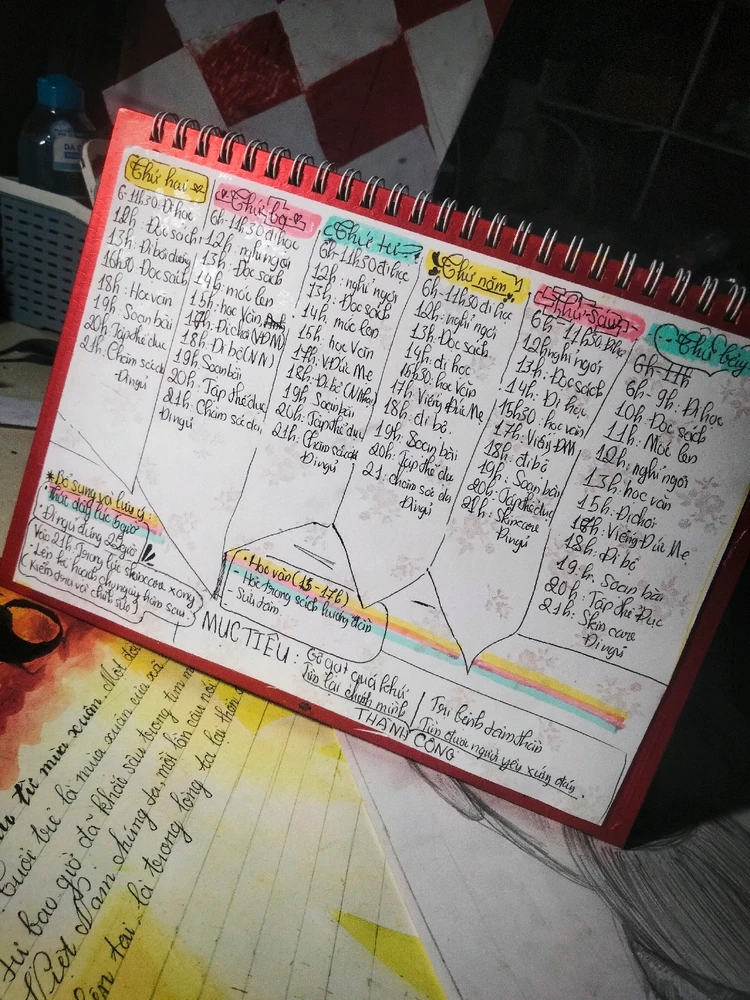 Thứ hai
6-11h30 Đi học
12h. Đọc sách
13h. Đi bồi dưỡng
16h30. Đọc sách
18h: Học văn
19h. Soạn bài
20h Tập thể dục
21h. Chăm sóc da
Đi ngủ
Thứ ba
6h-11h30 đi học
12h. nghỉ ngơi
13h. Đọc sách
14h. móc len
15h. học văn
17h. Đi chơi (VĐM)
18h. Đi bộ (VN)
19h. Soạn bài
20h. Tập thể dục
21h. Chăm sóc da
Đi ngủ
Thứ tư
6h-11h30 đi học
12h. nghỉ ngơi
13h. Đọc sách
14h. móc len
15h. học văn
17h. V Đức Mẹ
18h. Đi bộ
19h. Soạn bài
20h. Tập thể dục
21h. Chăm sóc da
Đi ngủ
Thứ năm
6h-11h30 đi học
12h. nghỉ ngơi
13h. Đọc sách
14h. đi học
16h30. học văn
17h. Viếng Đức Mẹ
18h. đi bộ
19h. Soạn bài
20h. Tập thể dục
21. Chăm sóc da
Đi ngủ
Thứ Sáu
6h-11h30 Đi học
12h nghỉ ngơi
13h. Đọc sách
14h. Đi học
15h30. học văn
17h. Viếng ĐM
18h. đi bộ
19h. Soạn bài
20h. Tập thể dục
21h. Skincare
Đi ngủ
Thứ bảy
6h-11h
6h-9h. Đi học
10h. Đọc sách
11h. Móc len
12h. nghỉ ngơi
13h. học văn
15h. Đi chơi
18h. Viếng Đức Mẹ
18h. Đi bộ
19h. Soạn bài
20h. Tập thể Dục
21h. Skin care
Đi ngủ
* Bổ sung và lưu ý
Thức dậy lúc 5 giờ
• Đi ngủ đúng giờ
Vào 21h. Trong lúc skincare xong
• Lên kế hoạch cho ngày hôm sau
(Kiểm tra và chỉnh sửa)
• Học văn (15-17h)
- Học trong sách hướng dẫn
- Sưu tầm
MỤC TIÊU: Gỡ gạt quá khứ
Tìm lại chính mình
THÀNH CÔNG
Trị bệnh
Tìm được người yêu xứng đáng.
từ mùa xuân. Một
Tuổi trẻ là mùa xuân của xã
từ bao giờ đã khắc sâu trong tim
Việt Nam chúng ta, mỗi lần câu nói
tại là trong lòng ta lại